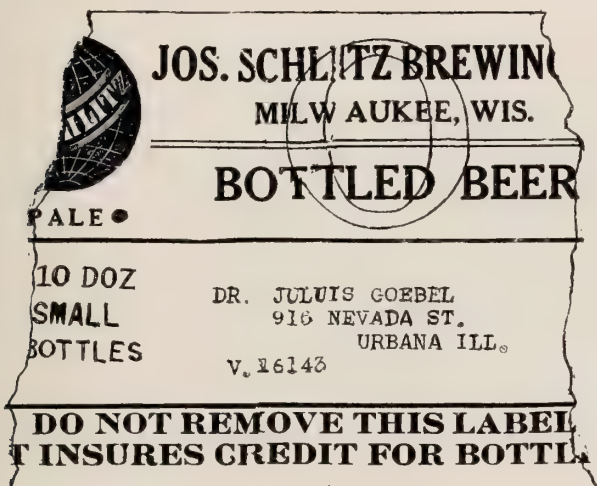 JOS. SCHLITZ BREWING
MILWAUKEE, WIS.
BOTTLED BEER
PALE
10 DOZ
SMALL
BOTTLES
DR. JULUIS GOEBEL
916 NEVADA ST.
URBANA ILL.
V. 16143
DO NOT REMOVE THIS LABEL
T INSURES CREDIT FOR BOTTL